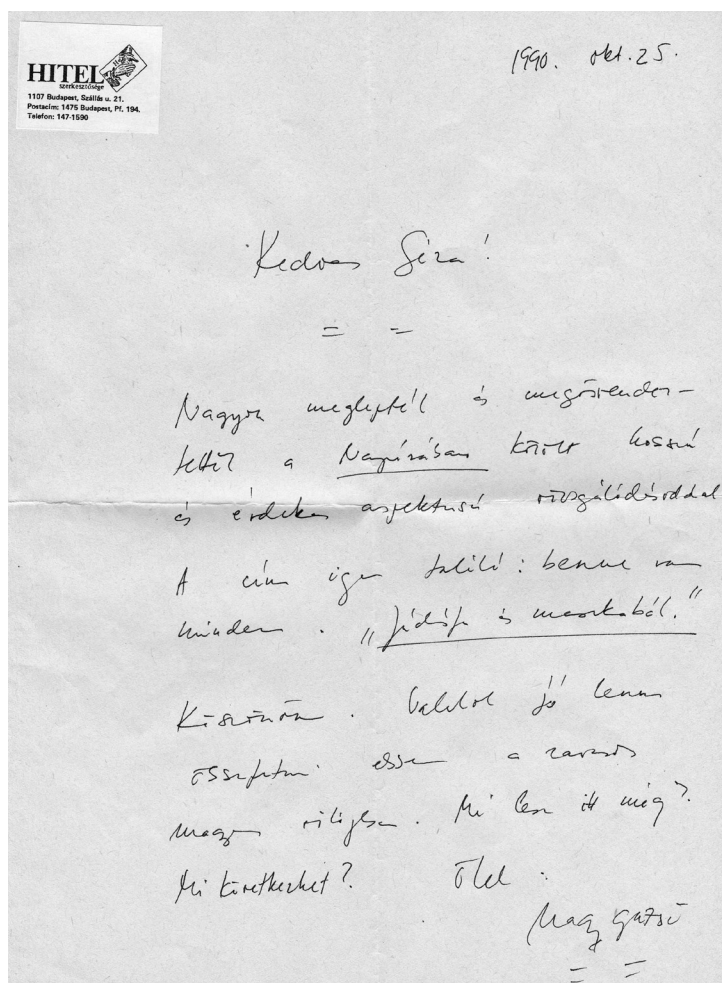 HITEL
szerkesztősége
1107 Budapest, Szállás u. 21.
Postacím: 1475 Budapest, Pf. 194.
Telefon: 147-1590
1990. okt. 25.
Kedves Géza!
Nagyon megleptél és megörvendez-
tettél a Napjainkban közölt hosszú
és érdekes aspektusú vizsgálódásoddal
A cím igen találó: benne van
minden. „ és maszkabál."
Köszönöm. Valahol jó lenne
összefutni ebben a zavaros
magyar világban. Mi lesz itt még?
Mi következhet? Ölel:
Nagy Gáspár